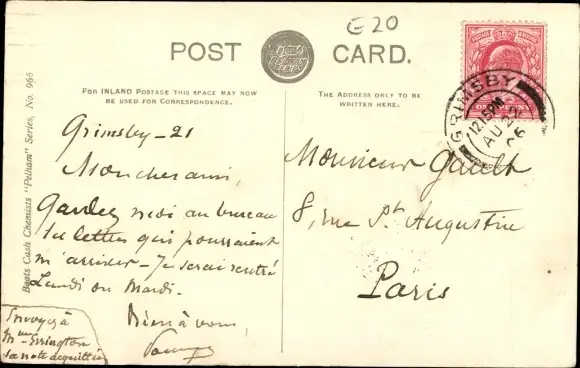 €20
POST CARD.
FOR INLAND POSTAGE THIS SPACE MAY NOW
BE USED FOR CORRESPONDENCE.
THE ADDRESS ONLY TO BE
WRITTEN HERE.
Boots Cash Chemists "Pelham" Series, No. 966
GRIMSBY
12.15PM
AU 22
06
Grimsby - 21
Mon cher ami,
Gardez moi au bureau
les lettres qui pourraient
m'arriver - Je serai rentré
Lundi ou Mardi.
Bien à vous,
Envoyez à
Mme Errington
sa note acquittée
Monsieur Gault
8, rue St Augustin
Paris